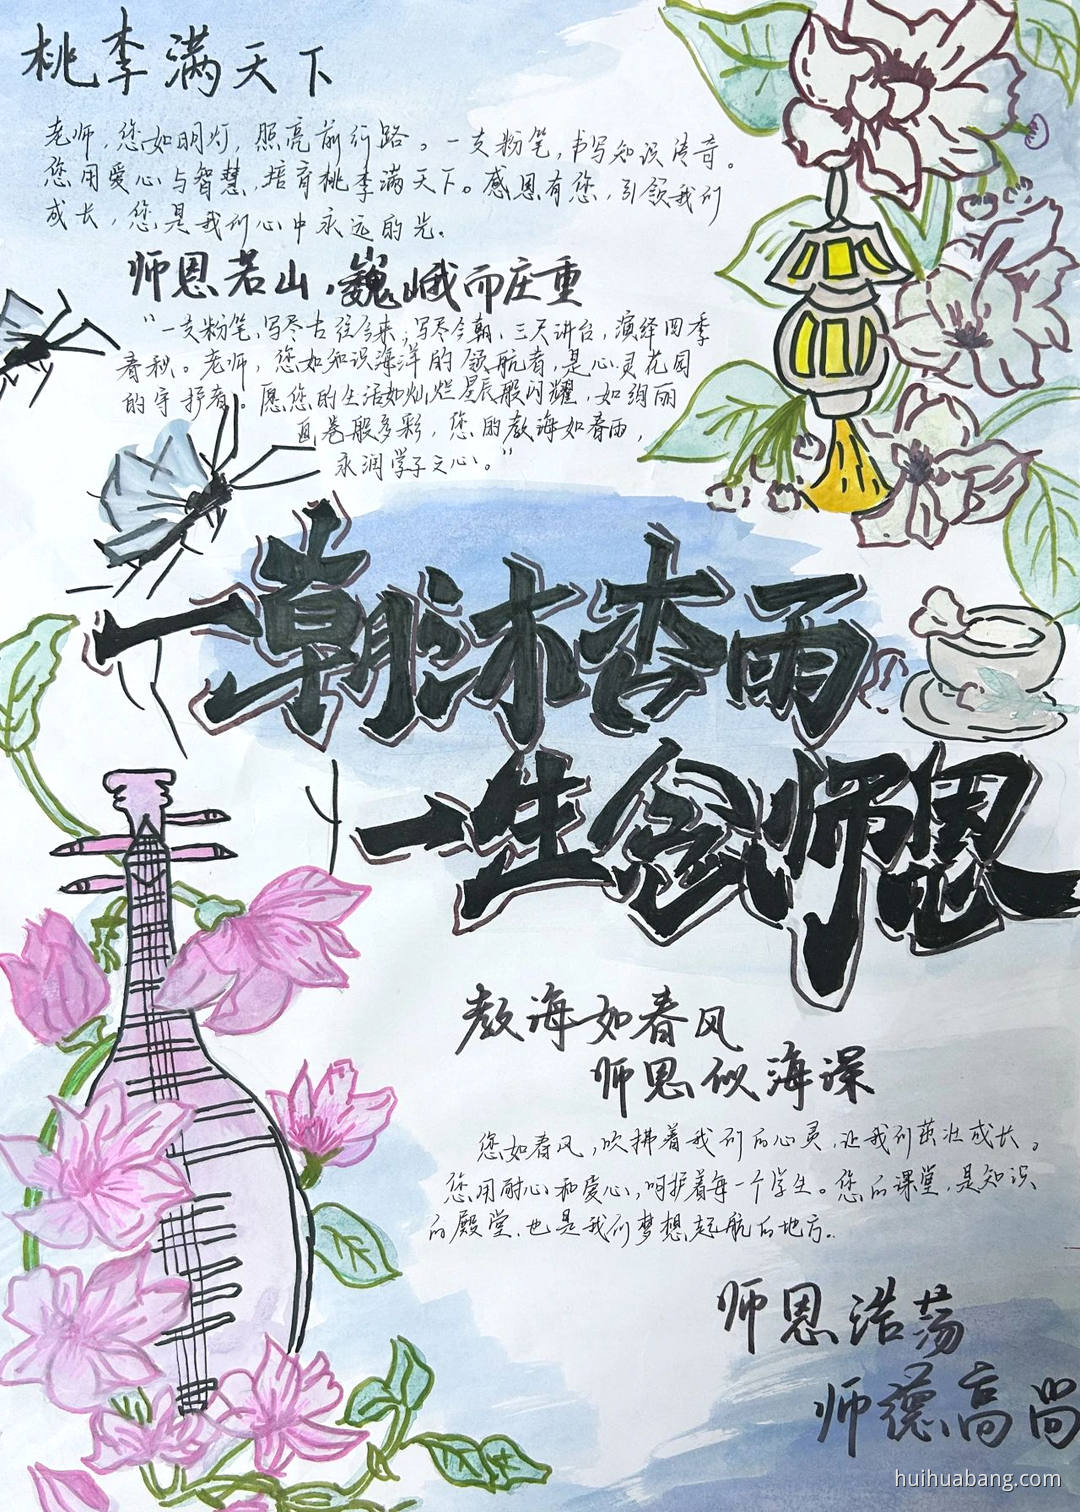 桃李满天下
老师，您如明灯，照亮前行路。一支粉笔，书写知识传奇。
您用爱心与智慧，培育桃李满天下。感恩有您，引领我们
成长，您是我们心中永远的光。
师恩若山，巍峨而庄重
“一支粉笔，写尽古往今来，写尽今朝，三尺讲台，演绎四季
春秋。老师，您如知识海洋的领航者，是心灵花园
的守护者。愿您的生活如灿烂星辰般闪耀，如绚丽
画卷般多彩，您的教海如春雨，
永润学子之心。”
一朝沐杏雨
一生念师恩
教海如春风
师恩似海深
您如春风，吹拂着我们的心灵，让我们茁壮成长。
您用耐心和爱心，呵护着每一个学生。您的课堂，是知识
的殿堂，也是我们梦想起航的地方。
师恩浩荡
师德高尚
huihuabang.com